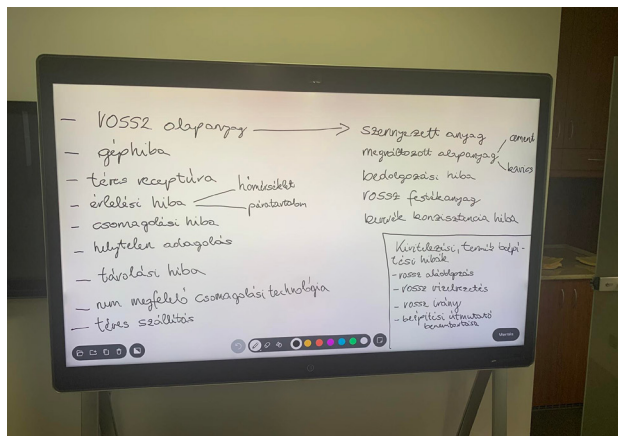 - rossz alapanyag →
- géphiba
- téves receptúra
- érlelési hiba
hőmérséklet
páratartalom
- csomagolási hiba
- helytelen adagolás
- tárolási hiba
- nem megfelelő csomagolási technológia
- téves szállítás
szennyezett anyag
megváltozott alapanyag
cement
kavics
bedolgozási hiba
rossz festékanyag
keverék konzisztencia hiba
Kivitelezési, termék beépí-
tési hibák
- rossz alédolgozás
- rossz vízelvezetés
- rossz irány
- beépítési útmutató